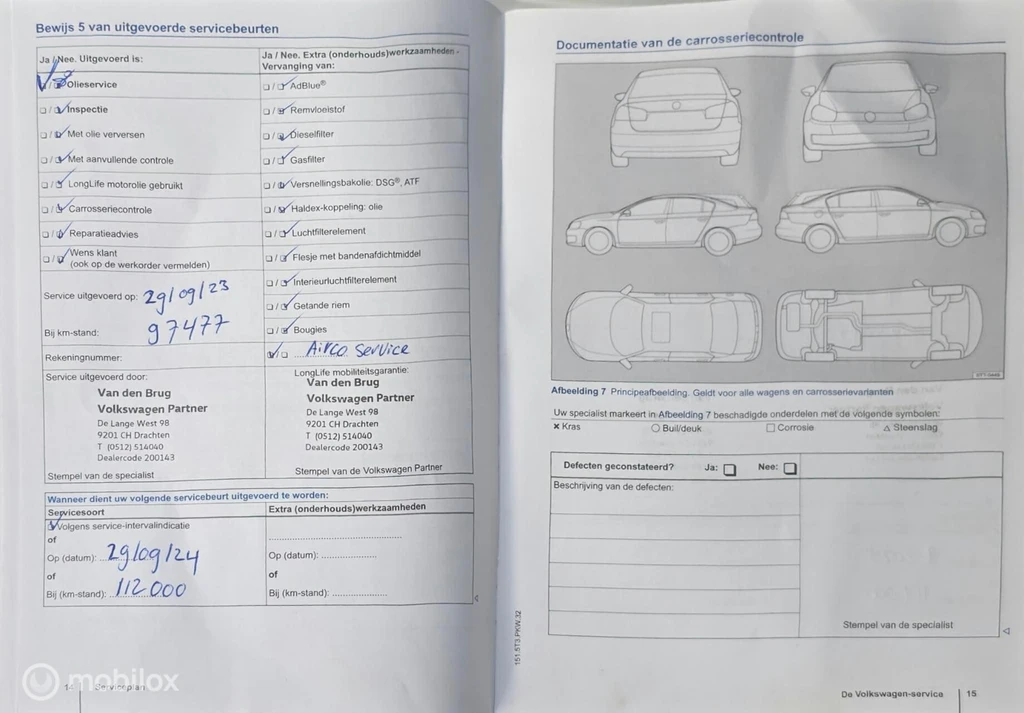 Bewijs 5 van uitgevoerde servicebeurten
Ja / Nee. Uitgevoerd is:
Olieservice
Inspectie
Met olie verversen
Met aanvullende controle
LongLife motorolie gebruikt
Carrosseriecontrole
Reparatieadvies
Wens klant
(ook op de werkorder vermelden)
Service uitgevoerd op: 29/09/23
Bij km-stand: 97477
Rekeningnummer:
Service uitgevoerd door:
Van den Brug
Volkswagen Partner
De Lange West 98
9201 CH Drachten
T (0512) 514040
Dealercode 200143
Stempel van de specialist
Ja / Nee. Extra (onderhouds)werkzaamheden -
Vervanging van:
AdBlue®
Remvloeistof
Dieselfilter
Gasfilter
Versnellingsbakolie: DSG®, ATF
Haldex-koppeling: olie
Luchtfilterelement
Flesje met bandenafdichtmiddel
Interieurluchtfilterelement
Getande riem
Bougies
Airco Service
LongLife mobiliteitsgarantie:
Van den Brug
Volkswagen Partner
De Lange West 98
9201 CH Drachten
T (0512) 514040
Dealercode 200143
Stempel van de Volkswagen Partner
Wanneer dient uw volgende servicebeurt uitgevoerd te worden:
Servicesoort
Volgens service-intervalindicatie
of
Op (datum): 29/09/24
of
Bij (km-stand): 112.000
Extra (onderhouds)werkzaamheden
Op (datum):
of
Bij (km-stand):
14 Serviceplan
mobilox
151.5T3.PKW.32
Documentatie van de carrosseriecontrole
Afbeelding 7 Principeafbeelding. Geldt voor alle wagens en carrosserievarianten
Uw specialist markeert in Afbeelding 7 beschadigde onderdelen met de volgende symbolen:
× Kras ○ Buil/deuk □ Corrosie △ Steenslag
Defecten geconstateerd? Ja: □ Nee: □
Beschrijving van de defecten:
Stempel van de specialist
De Volkswagen-service 15